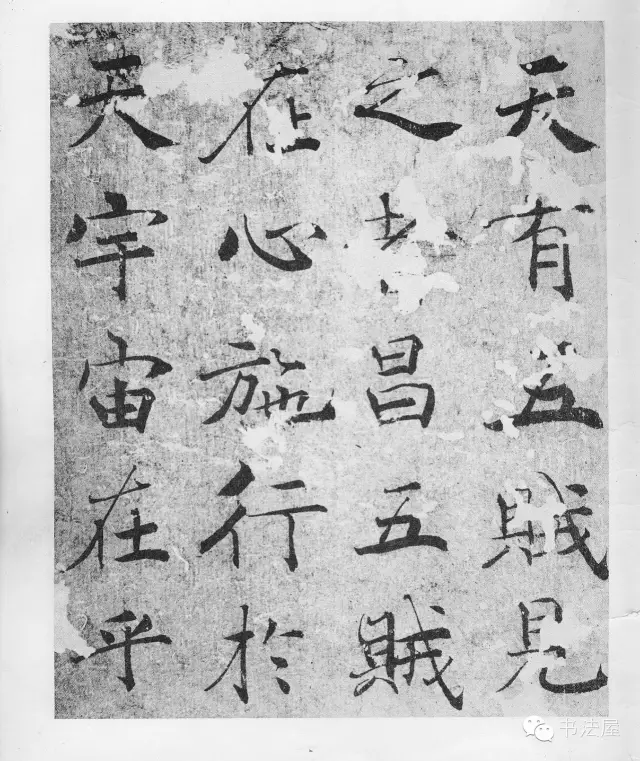 天有五賊見
之者昌五賊
在心施行於
天宇宙在乎
书法屋